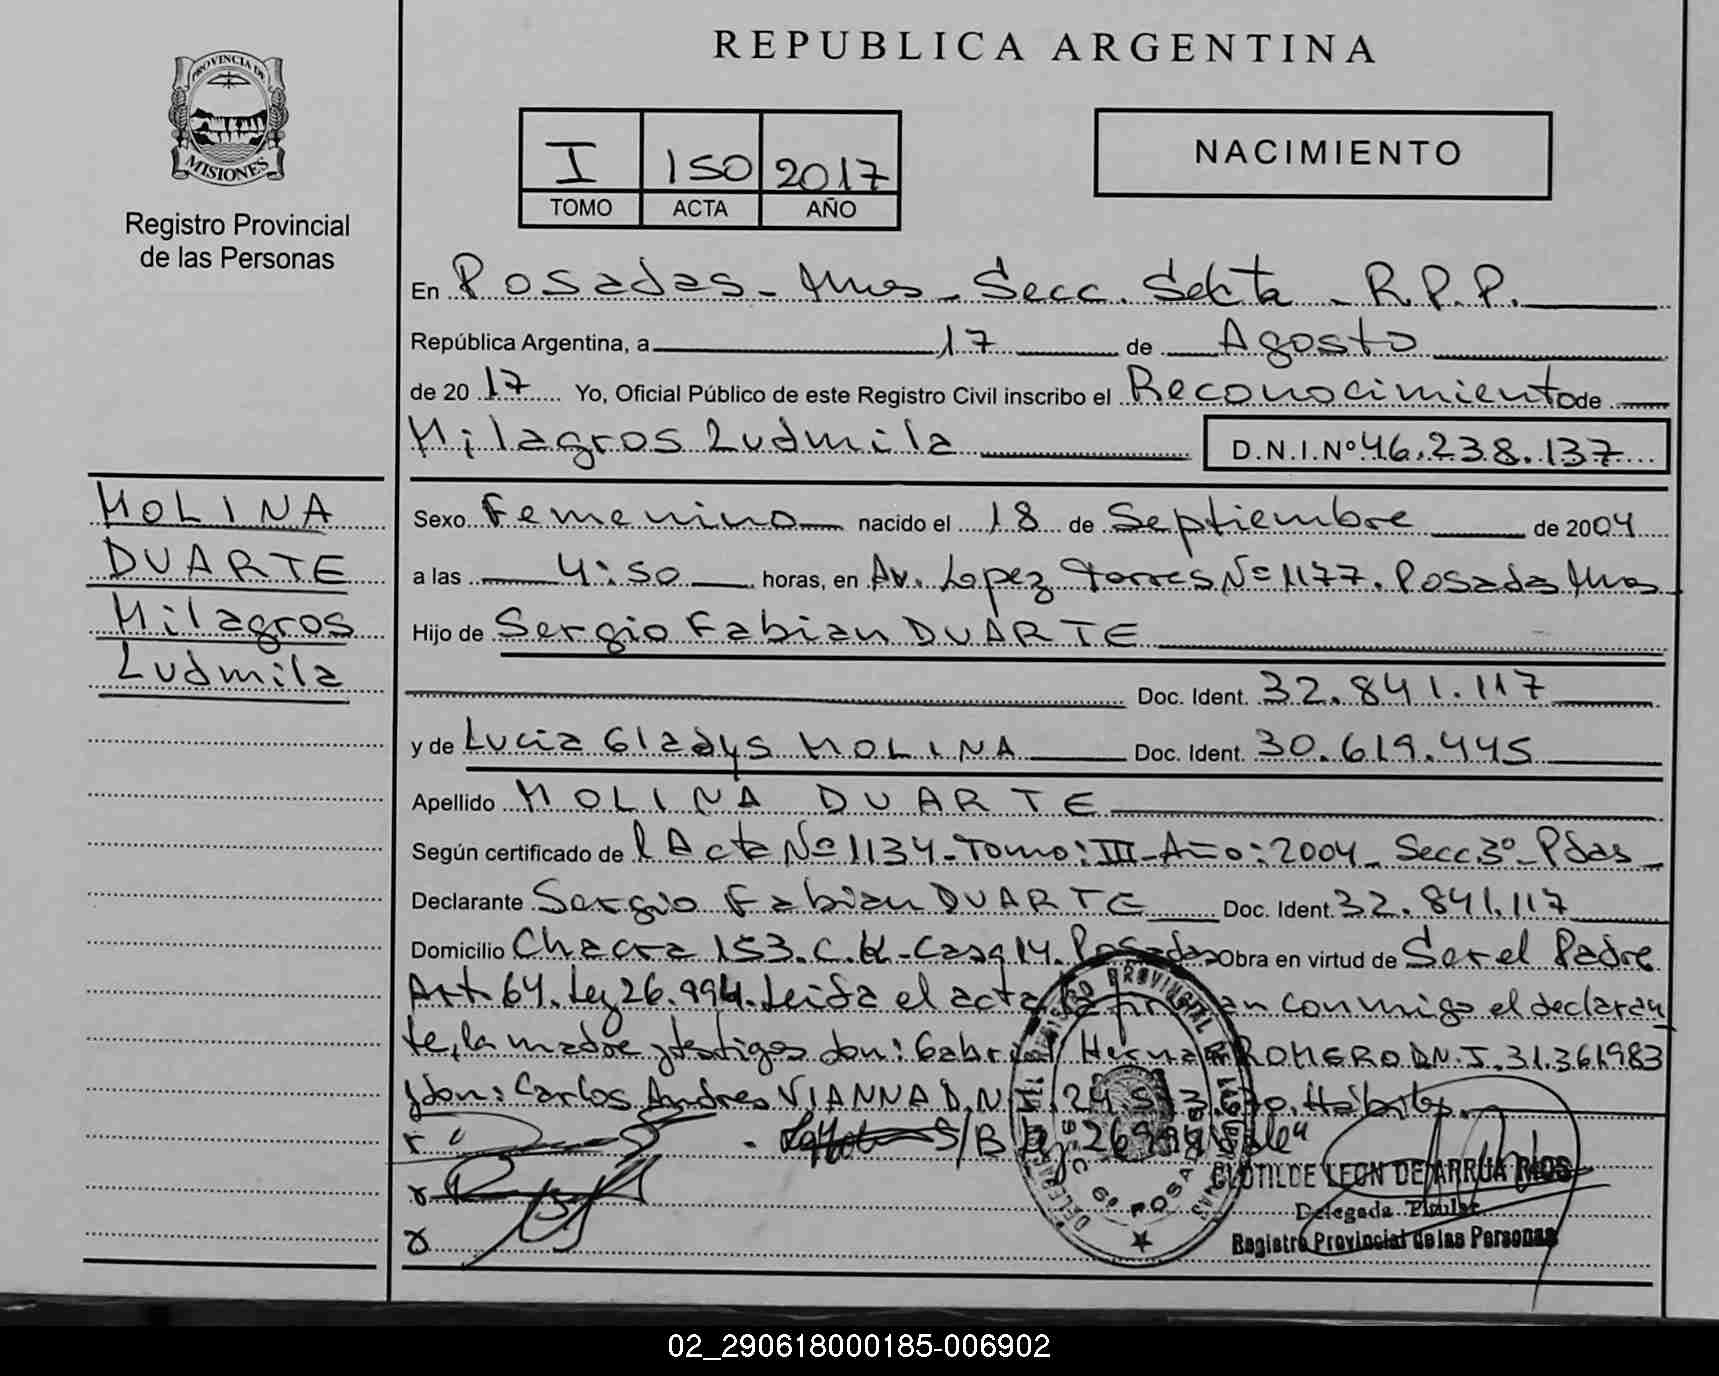 REPUBLICA ARGENTINA
PROVINCIA DE
MISIONES
Registro Provincial
de las Personas
I 150 2017
TOMO ACTA AÑO
NACIMIENTO
En Posadas - Mnes - Secc. Sexta - R.P.P.
República Argentina, a 17 de Agosto
de 2017 Yo, Oficial Público de este Registro Civil inscribo el Reconocimiento de
Milagros Ludmila D.N.I.Nº 46.238.137
MOLINA
DUARTE
Milagros
Ludmila
Sexo Femenino nacido el 18 de Septiembre de 2004
a las 4:50 horas, en Av. Lopez Torres Nº 1177. Posadas Mnes
Hijo de Sergio Fabian DUARTE
Doc. Ident. 32.841.117
y de Lucia Gladys MOLINA Doc. Ident. 30.619.445
Apellido MOLINA DUARTE
Según certificado de l Acta Nº 1134-Tomo: III-Año: 2004 - Secc 3º- Pdas
Declarante Sergio Fabian DUARTE Doc. Ident. 32.841.117
Domicilio Chacra 153. C. K-Casa 14. Posadas Obra en virtud de Ser el Padre
Art 64. Ley 26.994. Leida el acta la firman conmigo el declaran
te, la madre y testigos don: Gabriel Hernan ROMERO D.N.I. 31.361.983
y don: Carlos Andres VIANNA D.N.I. 24. Hábiles.
S/B Ley 26994 Vale"
CLOTILDE LEON DE ARRUA RIOS
Delegada Titular
Registro Provincial de las Personas
02_290618000185-006902